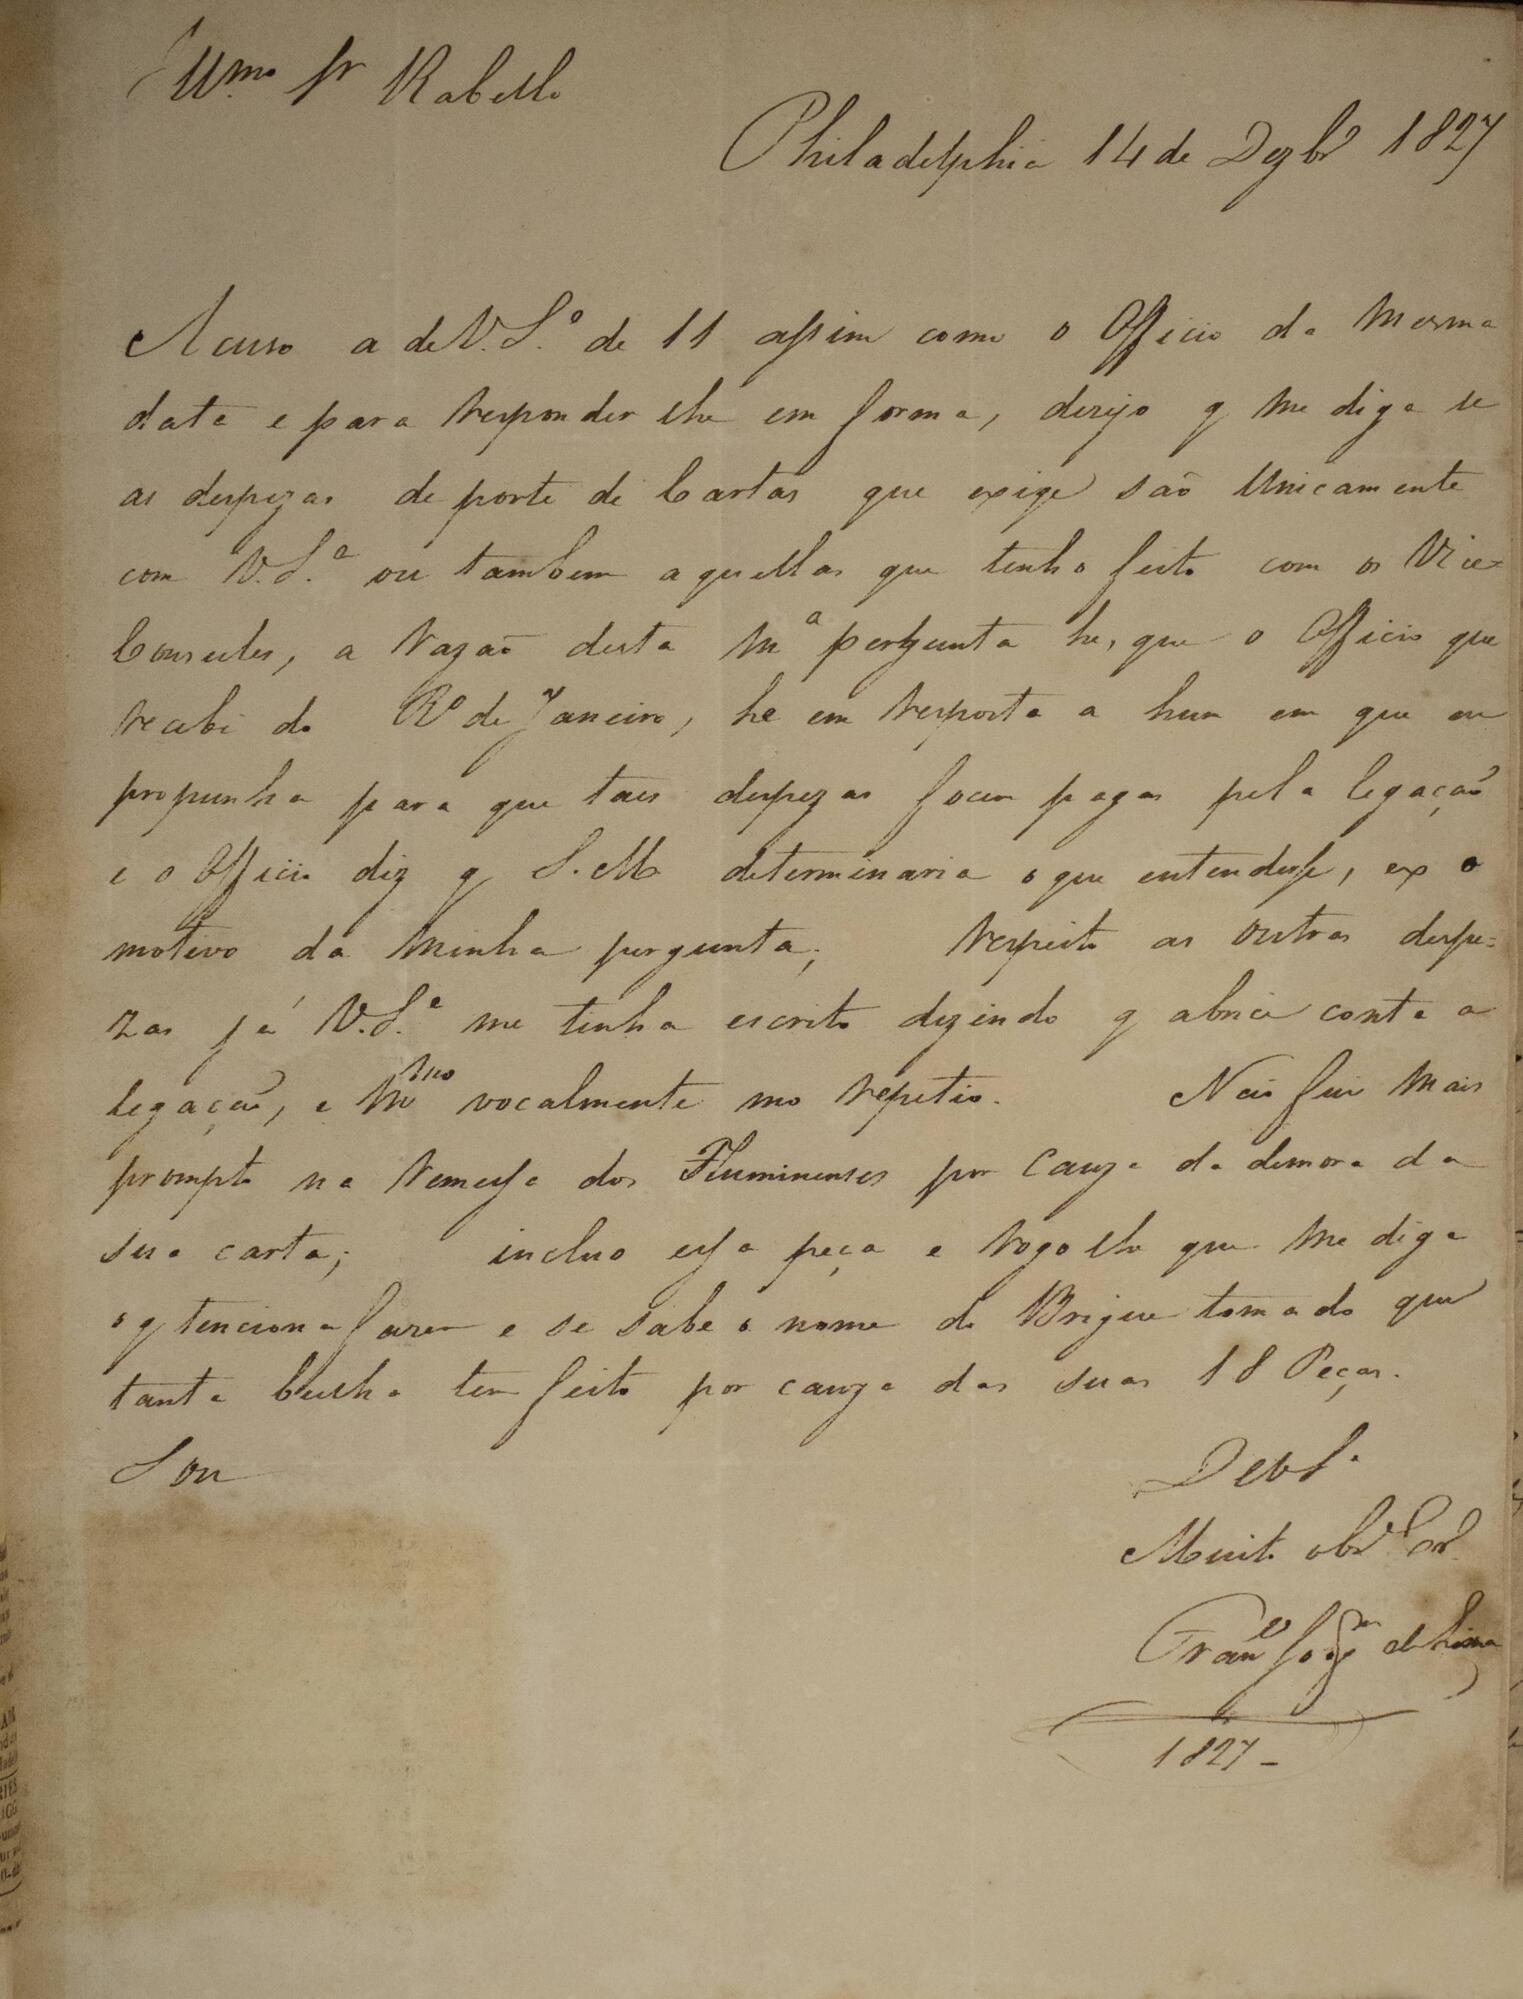 Illmo Sr Rabello
Philadelphia 14 de Dezbr 1827
Acuso a de V.Sª. de 11 assim como o Officio da mesma
data e para responder lhe em forma, desejo q me diga se
as despezas de porte de Cartas que exige são unicamente
com V.S.ª ou tambem aquellas que tenho feito com os Vice-
Consules, a razaõ desta mª pergunta he, que o Officio que
recebi do Rº de Janeiro, he em resposta a hum em que eu
propunha para que taes despezas focem pagas pela legaçaõ
e o Officio diz q S.M. determinaria o que entendesse, ex o
motivo da minha pergunta; respeito as outras despe=
zas já V.S.ª me tinha escrito dizindo q abria conta a
legaçaõ, e mmo vocalmente mo repetio. Naõ fui mais
prompto na remessa dos Fluminenses por cauza da demora da
sua carta; incluo essa peça e rogo lhe que me diga
o q tenciona fazer e se sabe o nome do Brigue tomado que
tanta bulha tem feito por cauza das suas 18 Peças.
Sou
De V.S.ª
Muito obrº Cro
Franco José de Lima
1827 -